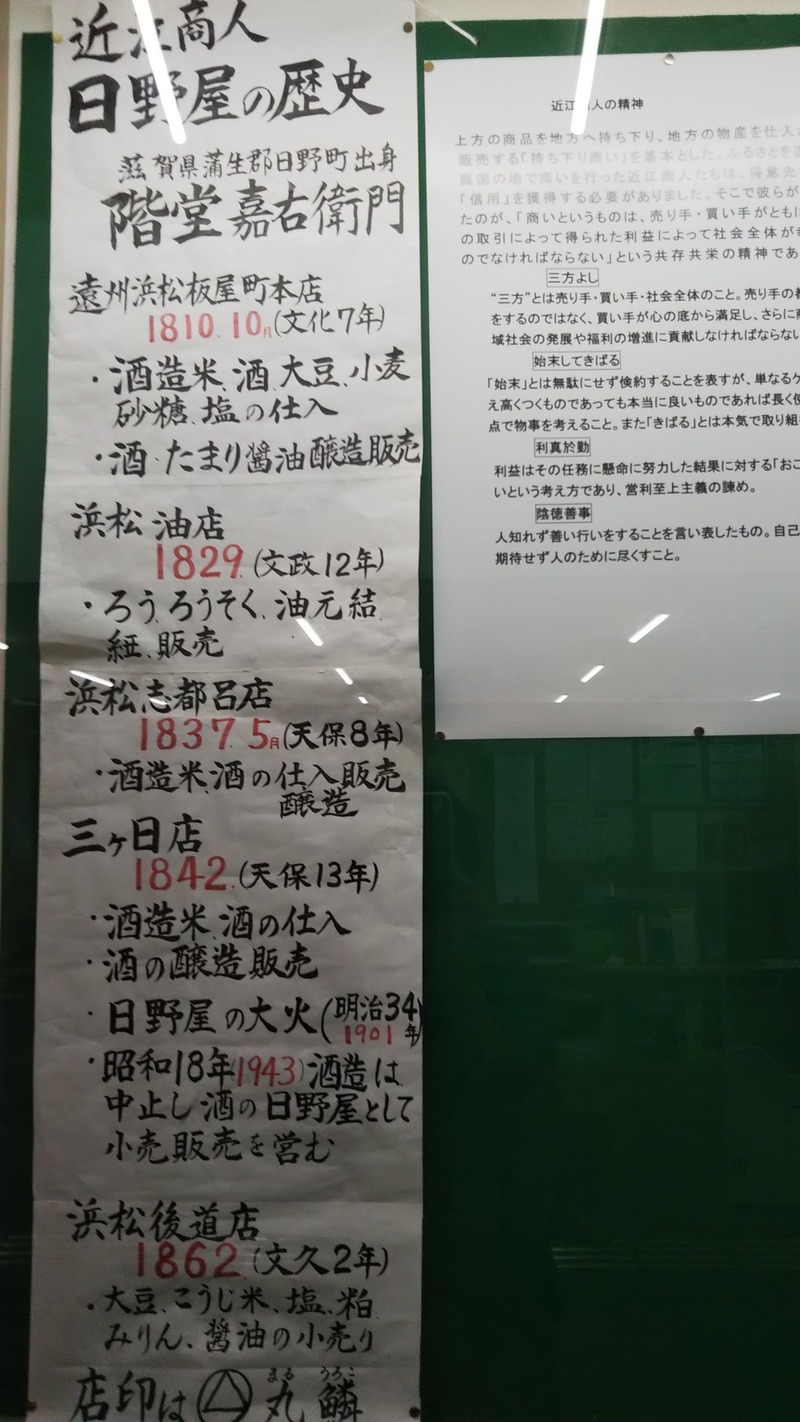 近江商人
日野屋の歴史
滋賀県蒲生郡日野町出身
階堂嘉右衛門
遠州浜松板屋町本店
1810.10月(文化7年)
・酒造米、酒、大豆、小麦
砂糖、塩の仕入
・酒・たまり醤油醸造販売
浜松油店
1829.(文政12年)
・ろう、ろうそく、油元結
紐、販売
浜松志都呂店
1837.5月(天保8年)
・酒造米、酒の仕入販売
醸造
三ヶ日店
1842.(天保13年)
・酒造米、酒の仕入
・酒の醸造販売
・日野屋の大火(明治34年
1901
・昭和18年(1943)酒造は
中止し酒の日野屋として
小売販売を営む
浜松後道店
1862(文久2年)
・大豆、こうじ米、塩、粕
みりん、醤油の小売り
まる うろこ
店印は 丸鱗
近江商人の精神
上方の商品を地方へ持ち下り、地方の物産を仕入
販売する「持ち下り商い」を基本とした。ふるさとを
異国の地で商いを行った近江商人たちは、得意先
「信用」を獲得する必要がありました。そこで彼らが
たのが、「商いというものは、売り手・買い手がともに
の取引によって得られた利益によって社会全体が
のでなければならない」という共存共栄の精神であ
三方よし
“三方”とは売り手・買い手・社会全体のこと。売り手の都
をするのではなく、買い手が心の底から満足し、さらに商
域社会の発展や福利の増進に貢献しなければならない
始末してきばる
「始末」とは無駄にせず倹約することを表すが、単なるケ
え高くつくものであっても本当に良いものであれば長く使
点で物事を考えること。また「きばる」とは本気で取り組
利真於勤
利益はその任務に懸命に努力した結果に対する「おこ
いという考え方であり、営利至上主義の諫め。
陰徳善事
人知れず善い行いをすることを言い表したもの。自己
期待せず人のために尽くすこと。